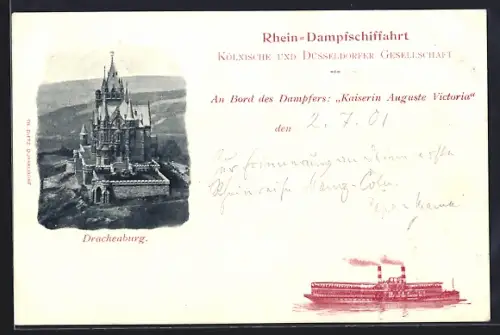 Rhein-Dampfschiffahrt
Kölnische und Düsseldorfer Gesellschaft
An Bord des Dampfers: „Kaiserin Auguste Victoria"
den 2. 7. 01
Zur Erinnerung an Deine erste
Rheinreise Mainz-Cöln.
Drachenburg.